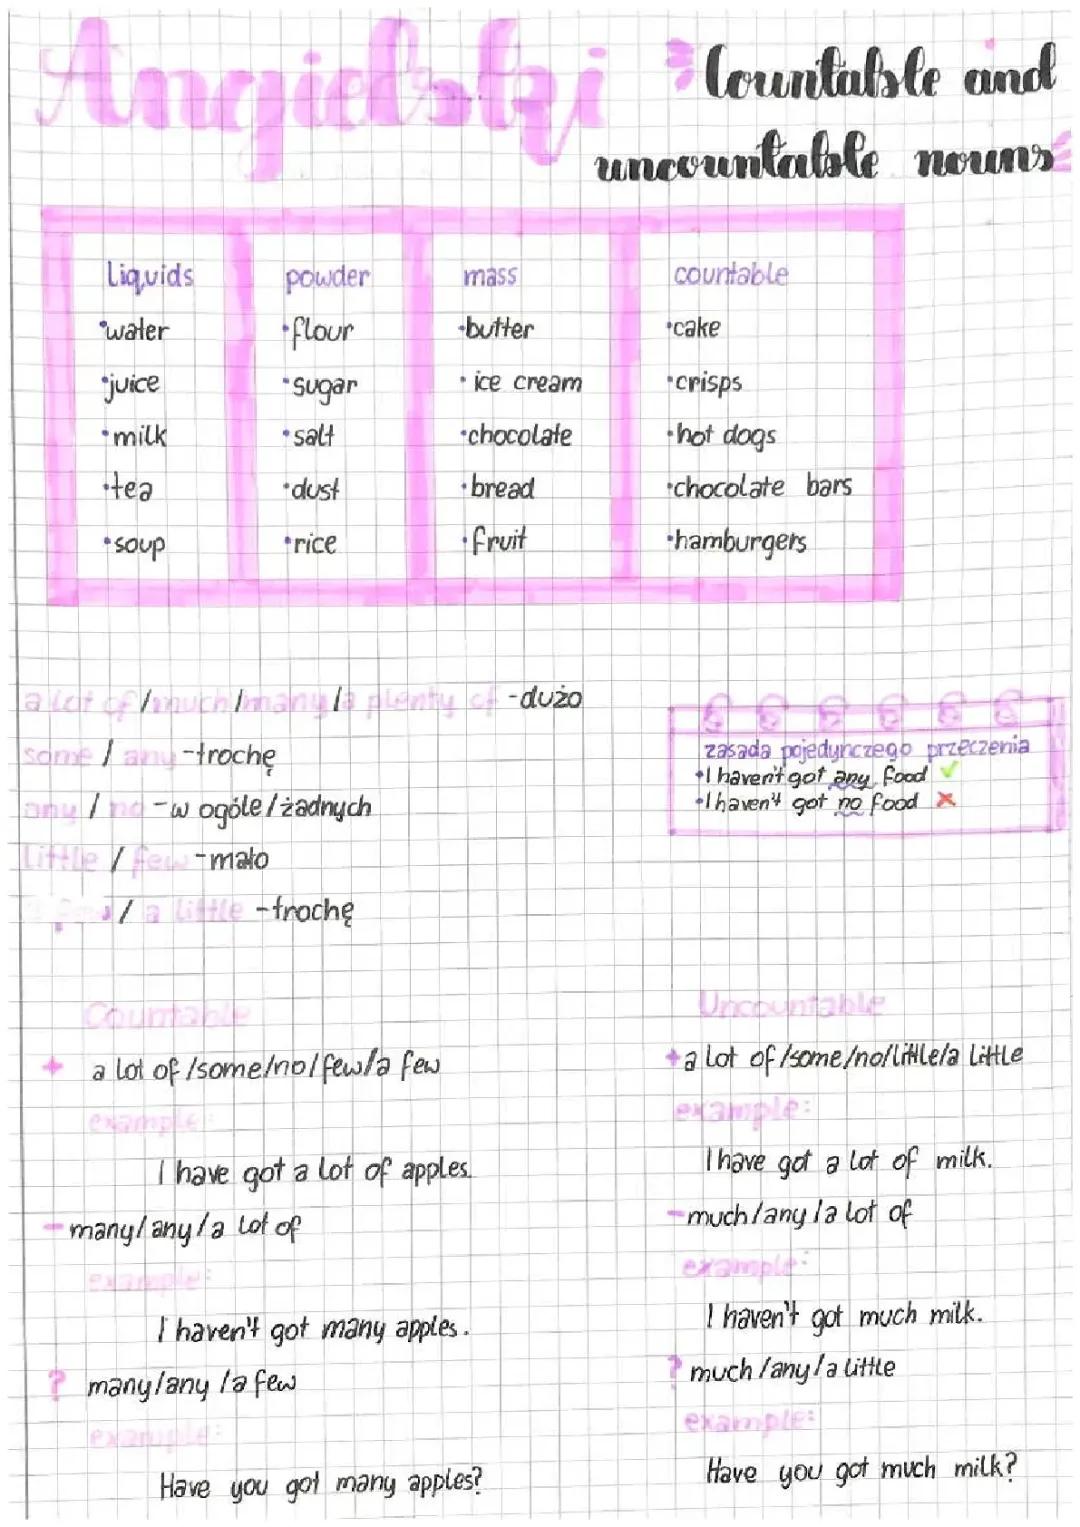 Angielski
Countable and
uncountable nouns
liquids powder mass countable
•water •flour •butter •cake
•juice •sugar •ice cream •crisps
•milk •salt •chocolate •hot dogs
•tea •dust •bread •chocolate bars
•soup •rice •fruit •hamburgers
a lot of/much/many/a plenty of -dużo
some / any -trochę
any / no -w ogóle/żadnych
little / few -mało
a few / a little -trochę
zasada pojedynczego przeczenia
•I haven't got any food ✓
•I haven't got no food ×
Countable
+ a lot of/some/no/few/a few
example:
I have got a lot of apples.
- many/any/a lot of
example:
I haven't got many apples.
? many/any/a few
example:
Have you got many apples?
Uncountable
+ a lot of/some/no/little/a little
example:
I have got a lot of milk.
- much/any/a lot of
example:
I haven't got much milk.
? much/any/a little
example:
Have you got much milk?